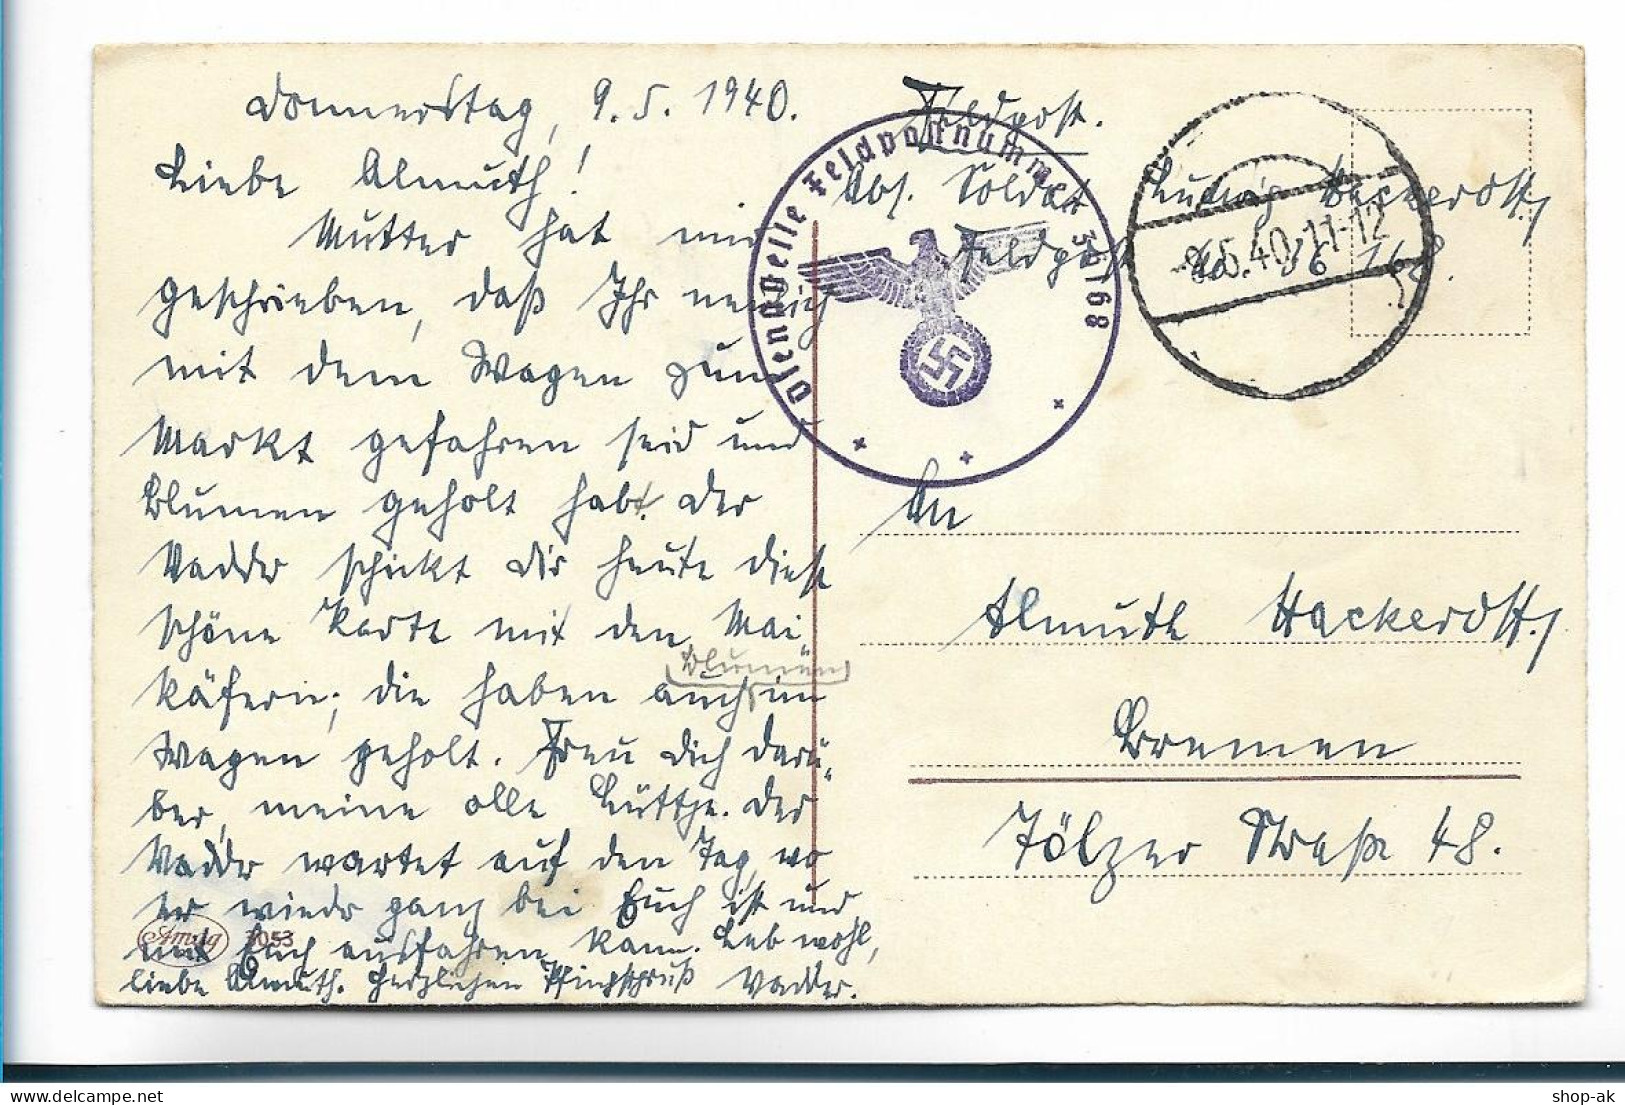 Donnerstag, 9.5.1940.
Liebe Almuth!
Mutter hat mir
geschrieben, daß Ihr neulich
mit dem Wagen zum
Markt gefahren seid und
Blumen geholt habt. Der
Vadder schickt Dir heute diese
schöne Karte mit den Mai
käfern; die haben auch Blumen im
Wagen geholt. Freu Dich darü-
ber, meine olle Lüttje. Der
Vadder wartet auf den Tag, wo
er wieder ganz bei Euch ist und
mit Euch ausfahren kann. Leb wohl,
liebe Almuth. Herzlichen Pfingstgruß Vadder.
Amag 3053
Feldpost.
Abs. Soldat Ludwig Hackerott,
Feldpost
Dienststelle Feldpostnummer
9.5.40.11-12
An
Almuth Hackerott,
Bremen
Tölzer Straße 48.
shop-ak